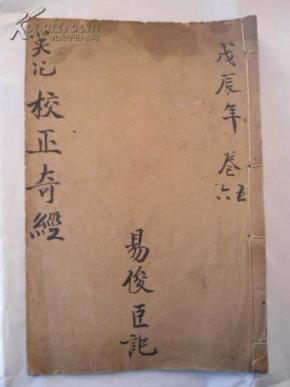 戊辰年 卷五六
易俊臣記
校正奇經